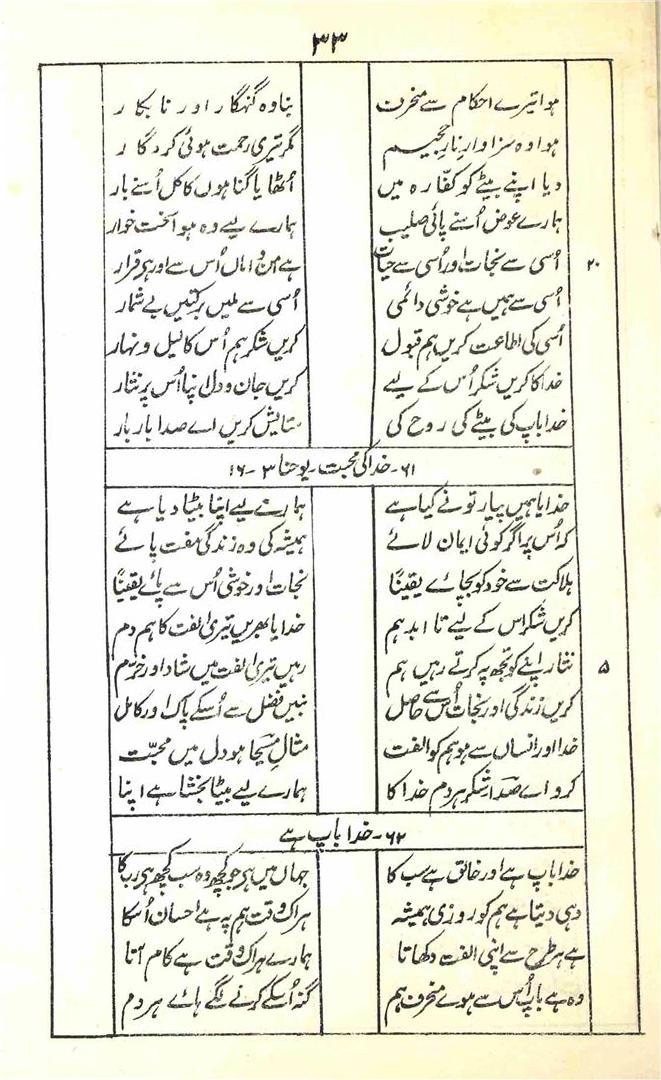 ۳۳
ہوا تیرے احکام سے منحرف بنا وہ گنہگار اور نابکار
ہوا وہ سزاوارِ نارِ جحیم مگر تیری رحمت ہوئی کردگار
دیا اپنے بیٹے کو کفّارہ میں اُٹھایا گناہوں کا کل اُسنے بار
ہمارے عوض اُسنے پائی صلیب ہمارے لیے وہ ہوا سخت خوار
۲۰ اُسی سے نجات اور اُسی سے حیات ہے امن و اماں اُس سے اور ہی قرار
اُسی سے ہمیں ہے خوشی دائمی اُسی سے ملیں برکتیں بے شمار
اُسی کی اطاعت کریں ہم قبول کریں شکر ہم اُس کا لیل و نہار
خدا کا کریں شکر اُس کے لیے کریں جان و دل اپنا اُس پر نثار
خدا باپ کی بیٹے کی روح کی ستایش کریں اے صدا بار بار
۶۱۔ خدا کی محبت ۔ یوحنا ۳۔۱۶
خدایا ہمیں پیار تو نے کیا ہے ہمارے لیے اپنا بیٹا دیا ہے
کہ اُس پر اگر کوئی ایمان لائے ہمیشہ کی وہ زندگی مفت پائے
ہلاکت سے خود کو بچائے یقیناً نجات اور خوشی اُس سے پائے یقیناً
کریں شکر اس کے لیے تا ابد ہم خدایا بھریں تیری الفت کا ہم دم
۵ نثار اپنے کو تجھ پہ کرتے رہیں ہم رہیں تیری الفت میں شاد اور خرّم
کریں زندگی اور نجات اُس سے حاصل بنیں فضل سے اُسکے پاک اور کامل
خدا اور انساں سے ہو ہم کو الفت مثالِ مسیحا ہو دل میں محبّت
کرو اے صدا شکر ہر دم خدا کا ہمارے لیے بیٹا بخشا ہے اپنا
۶۲۔ خدا باپ ہے
خدا باپ ہے اور خالق ہے سب کا جہاں میں ہی جو کچھ وہ سب کچھ ہی رب کا
وہی دیتا ہے ہم کو روزی ہمیشہ ہر اک وقت ہم پہ ہے احسان اُسکا
ہے ہر طرح سے اپنی الفت دکھاتا ہمارے ہر اک وقت ہے کام آتا
وہ ہے باپ اُس سے ہوے منحرف ہم گنہ اُسکے کرنے لگے ہائے ہر دم